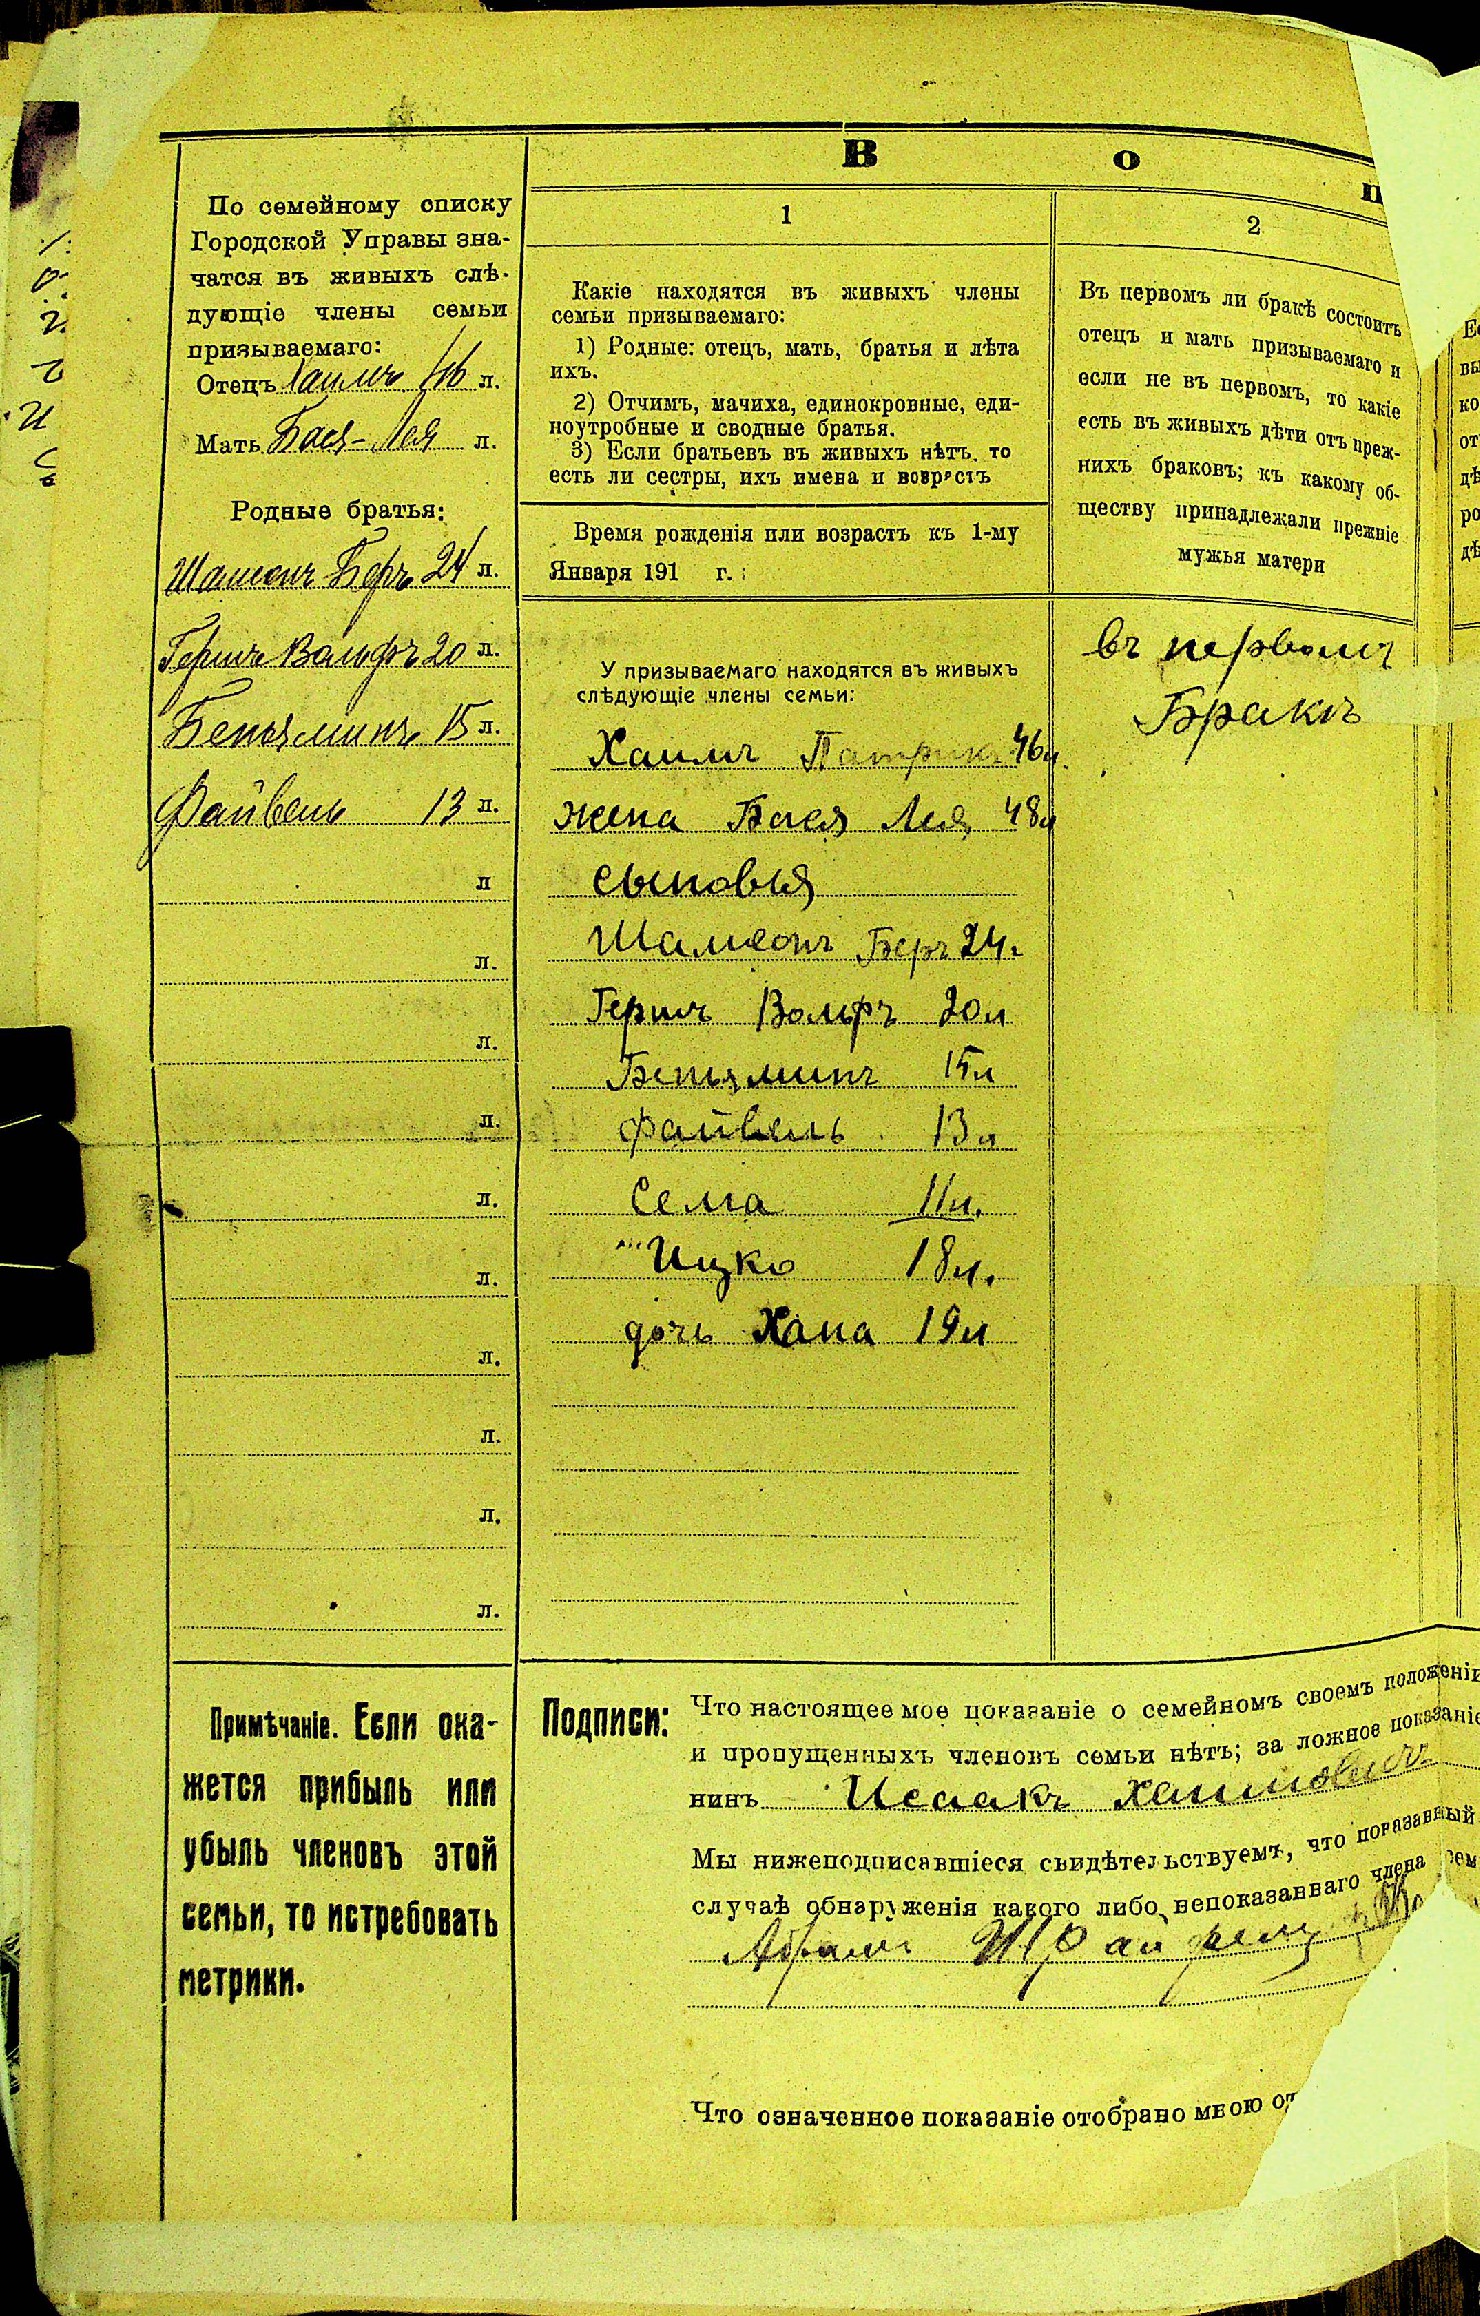 В о п
По семейному списку
Городской Управы зна-
чатся въ живыхъ слѣ-
дующіе члены семьи
призываемаго:
Отецъ Хаимъ 46 л.
Мать Бася-Лея л.
Родные братья:
Шамсонъ Беръ 24 л.
Гершъ Вольфъ 20 л.
Беньяминъ 15 л.
Файвель 13 л.
л
л.
л.
л.
л.
л.
л.
л.
л.
л.
1
Какіе находятся въ живыхъ члены
семьи призываемаго:
1) Родные: отецъ, мать, братья и лѣта
ихъ.
2) Отчимъ, мачиха, единокровные, еди-
ноутробные и сводные братья.
3) Если братьевъ въ живыхъ нѣтъ, то
есть ли сестры, ихъ имена и возрастъ
Время рожденія или возрастъ къ 1-му
Января 191 г.:
У призываемаго находятся въ живыхъ
слѣдующіе члены семьи:
Хаимъ 46 л.
жена Бася Лея 48 л
сыновья
Шамсонъ Беръ 24 г
Гершъ Вольфъ 20 л
Беньяминъ 15 л
Файвель 13 л
Сема 11 л.
Ицко 18 л.
дочь Хана 19 л
2
Въ первомъ ли бракѣ состоитъ
отецъ и мать призываемаго и
если не въ первомъ, то какіе
есть въ живыхъ дѣти отъ преж-
нихъ браковъ; къ какому об-
ществу принадлежали прежніе
мужья матери
въ первомъ
Бракъ
Примѣчаніе. Если ока-
жется прибыль или
убыль членовъ этой
семьи, то истребовать
метрики.
Подписи:
Что настоящее мое показаніе о семейномъ своемъ положені
и пропущенныхъ членовъ семьи нѣтъ; за ложное показаніе
нинъ Исаакъ Хаимовичъ
Мы нижеподписавшіеся свидѣтельствуемъ, что показанный
случаѣ обнаруженія какого либо непоказаннаго члена сем
Абрамъ
Что означенное показаніе отобрано мною от